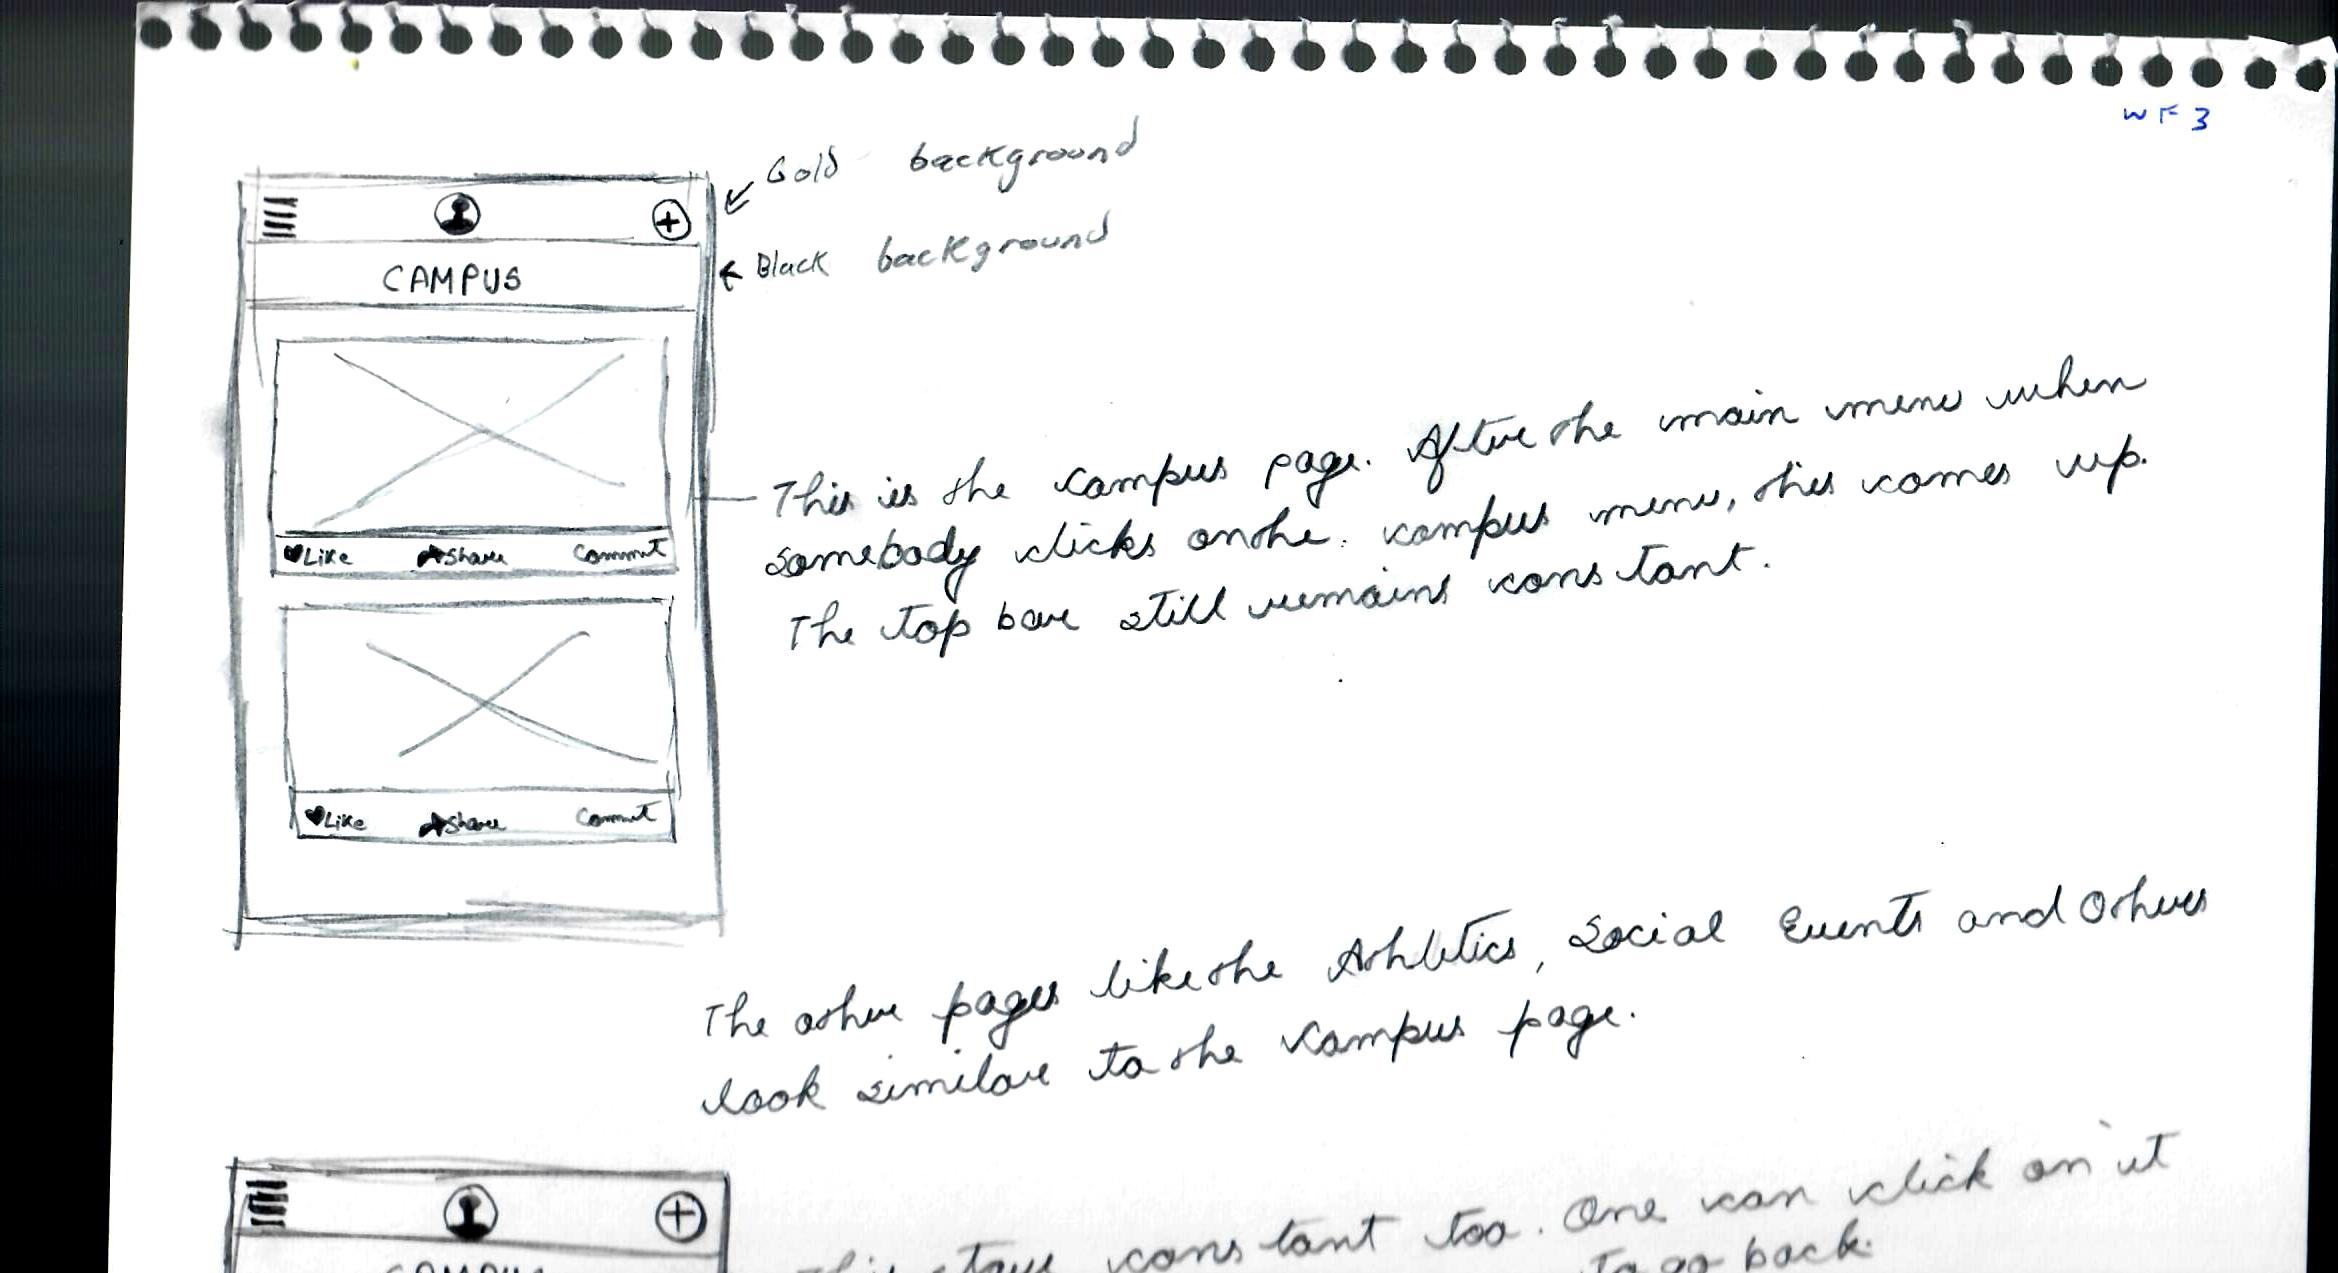 WF3
Gold background
Black background
CAMPUS
Like Share Comment
This is the campus page. After the main menu when
somebody clicks on the campus menu, this comes up.
The top bar still remains constant.
Like Share Comment
The other pages like the Athletics, Social Events and Others
look similar to the campus page.
This stays constant too. One can click on it
to go back.
CAMPUS